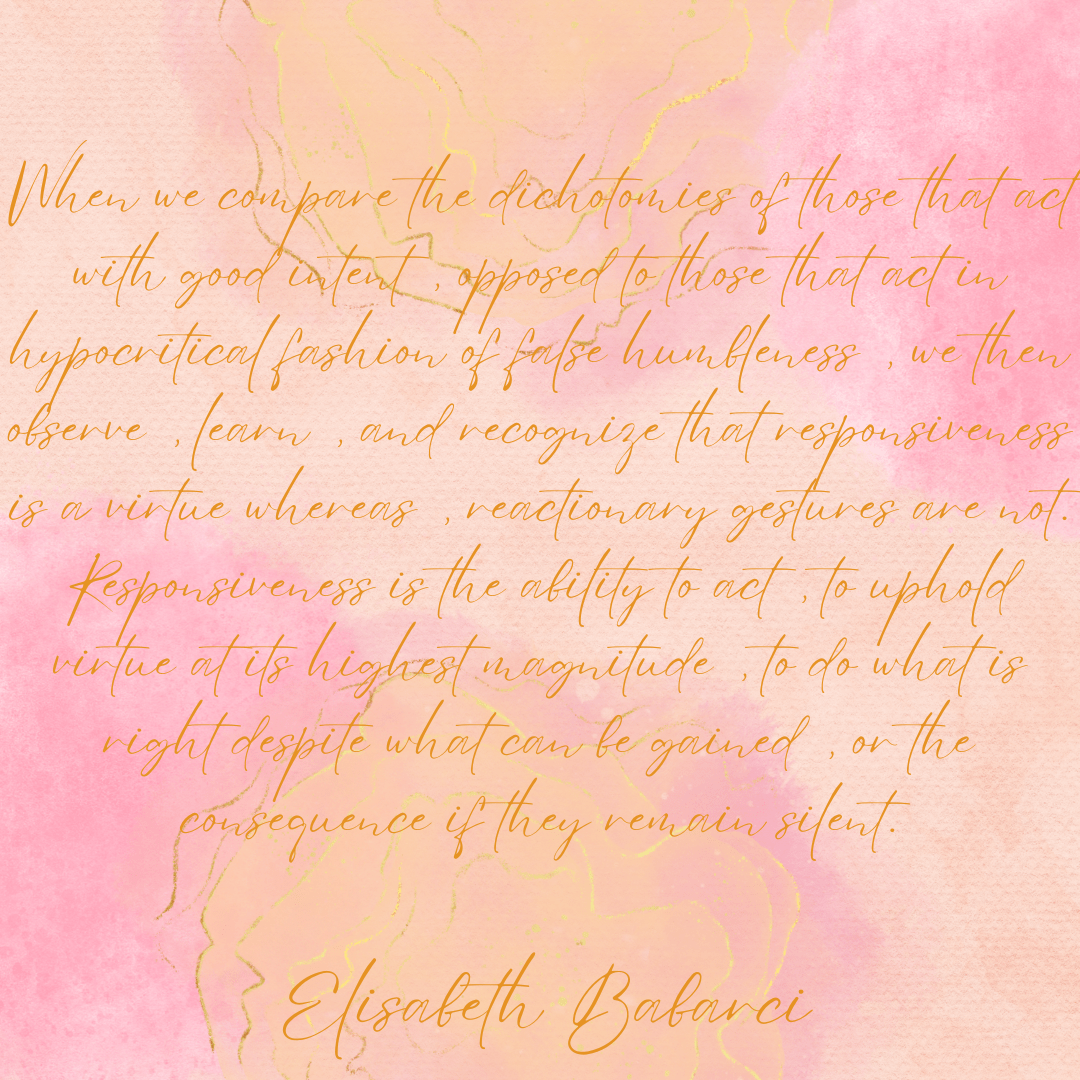 When we compare the dichotomies of those that act
with good intent , opposed to those that act in
hypocritical fashion of false humbleness , we then
observe , learn , and recognize that responsiveness
is a virtue whereas , reactionary gestures are not.
Responsiveness is the ability to act , to uphold
virtue at its highest magnitude , to do what is
right despite what can be gained , or the
consequence if they remain silent.
Elisabeth Babarci